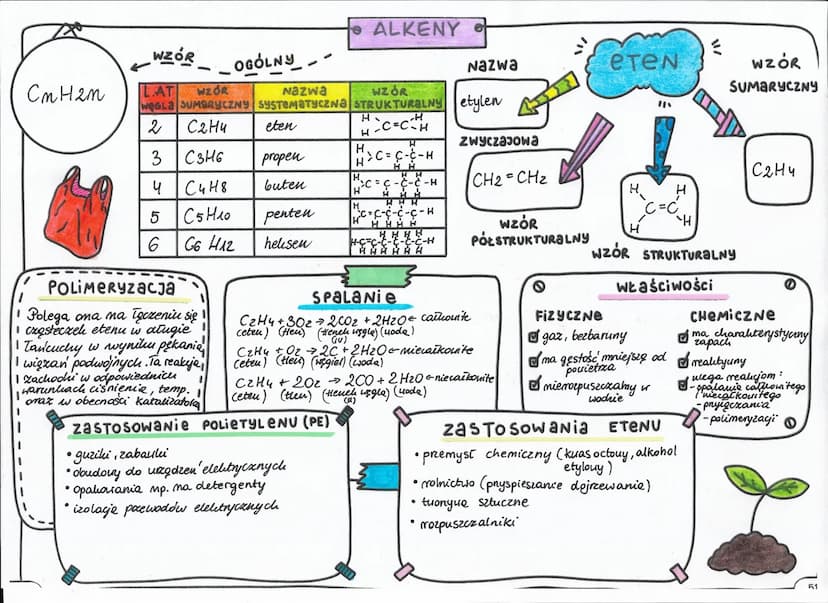 ALKENY
WZÓR OGÓLNY
CnH2n
L.AT WĘGLA
WZÓR SUMARYCZNY
NAZWA SYSTEMATYCZNA
WZÓR STRUKTURALNY
2 C2H4 eten
3 C3H6 propen
4 C4H8 buten
5 C5H10 penten
6 C6H12 heksen
ETEN
NAZWA
etylen
ZWYCZAJOWA
CH2=CH2
WZÓR
PÓŁSTRUKTURALNY
H H
C=C
H H
WZÓR STRUKTURALNY
WZÓR
SUMARYCZNY
C2H4
POLIMERYZACJA
Polega ona na łączeniu się
cząsteczek etenu w długie
łańcuchy w wyniku pękania
wiązań podwójnych. Ta reakcja
zachodzi w odpowiednich
warunkach ciśnienia, temp.
oraz w obecności katalizatora
SPALANIE
C2H4 + 3O2 → 2CO2 + 2H2O ← całkowite
(eten) (tlen) (tlenek węgla) (woda)
(IV)
C2H4 + O2 → 2C + 2H2O ← niecałkowite
(eten) (tlen) (węgiel) (woda)
C2H4 + 2O2 → 2CO + 2H2O ← niecałkowite
(eten) (tlen) (tlenek węgla) (woda)
(II)
WŁAŚCIWOŚCI
FIZYCZNE
gaz, bezbarwny
ma gęstość mniejszą od
powietrza
nierozpuszczalny w
wodzie
CHEMICZNE
ma charakterystyczny
zapach
reaktywny
ulega reakcjom:
-spalania całkowitego
i niecałkowitego
-przyłączania
-polimeryzacji
ZASTOSOWANIE POLIETYLENU (PE)
• guziki, zabawki
• obudowy do urządzeń elektrycznych
• opakowania np. na detergenty
• izolacje przewodów elektrycznych
ZASTOSOWANIA ETENU
• przemysł chemiczny (kwas octowy, alkohol
etylowy)
• rolnictwo (przyspieszanie dojrzewania)
• tworzywa sztuczne
• rozpuszczalniki
51